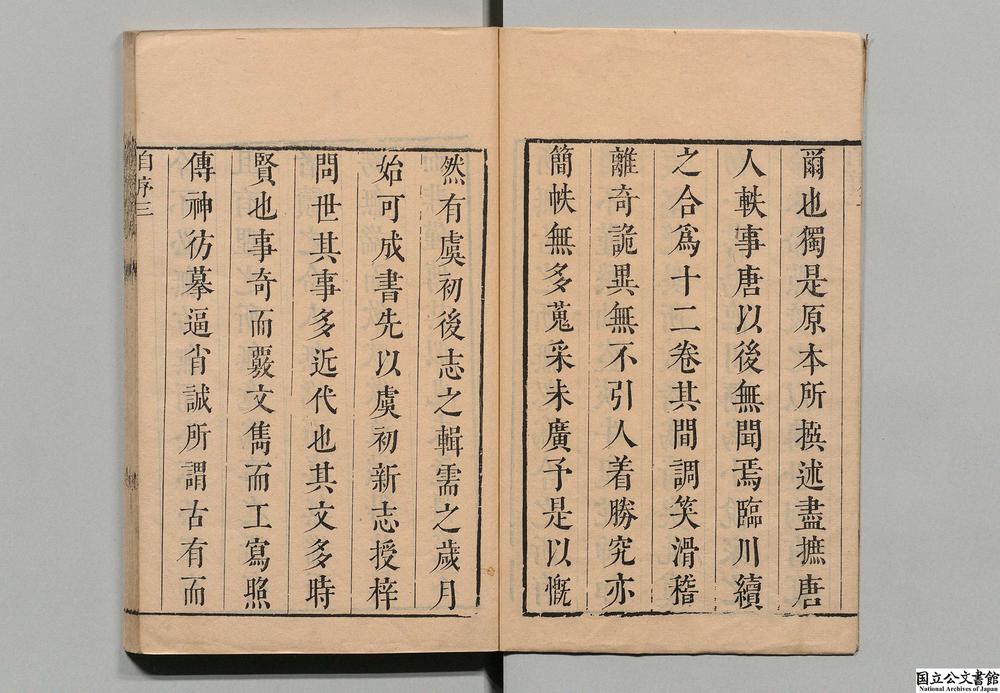 爾也獨是原本所撰述盡摭唐
人軼事唐以後無聞焉臨川續
之合爲十二卷其間調笑滑稽
離奇詭異無不引人着勝究亦
簡帙無多蒐采未廣予是以慨
然有虞初後志之輯需之歲月
始可成書先以虞初新志授梓
問世其事多近代也其文多時
賢也事奇而覈文雋而工寫照
傳神仿摹逼肖誠所謂古有而
自序三
国立公文書館
National Archives of Japan